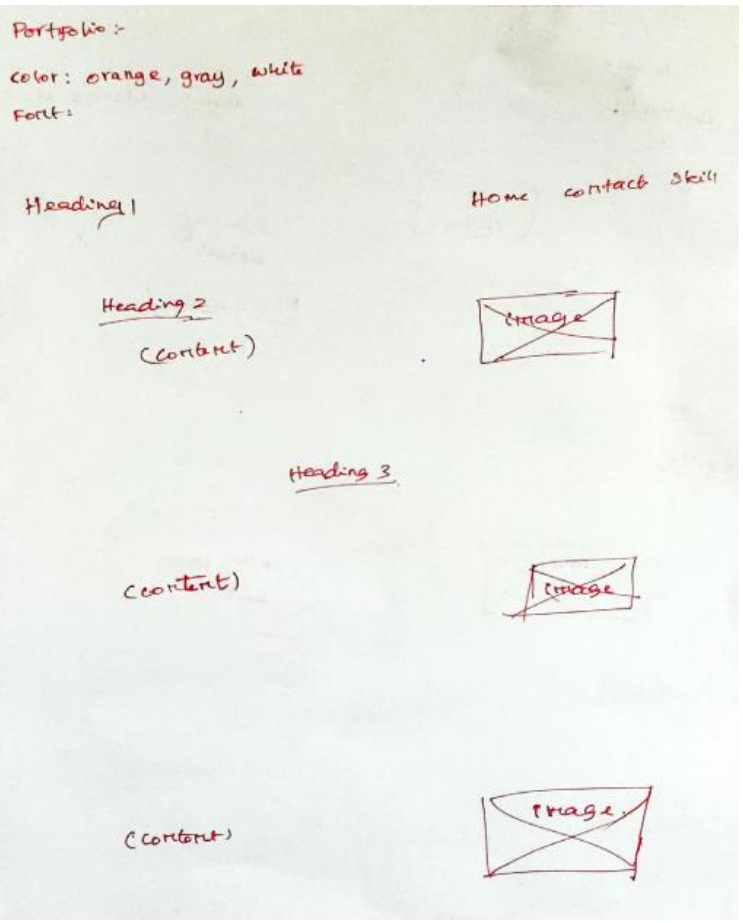 Portfolio :-
color: orange, gray, white
Font:
Heading 1
Home contact Skill
Heading 2
image
(content)
Heading 3
(content)
image
image.
(content)